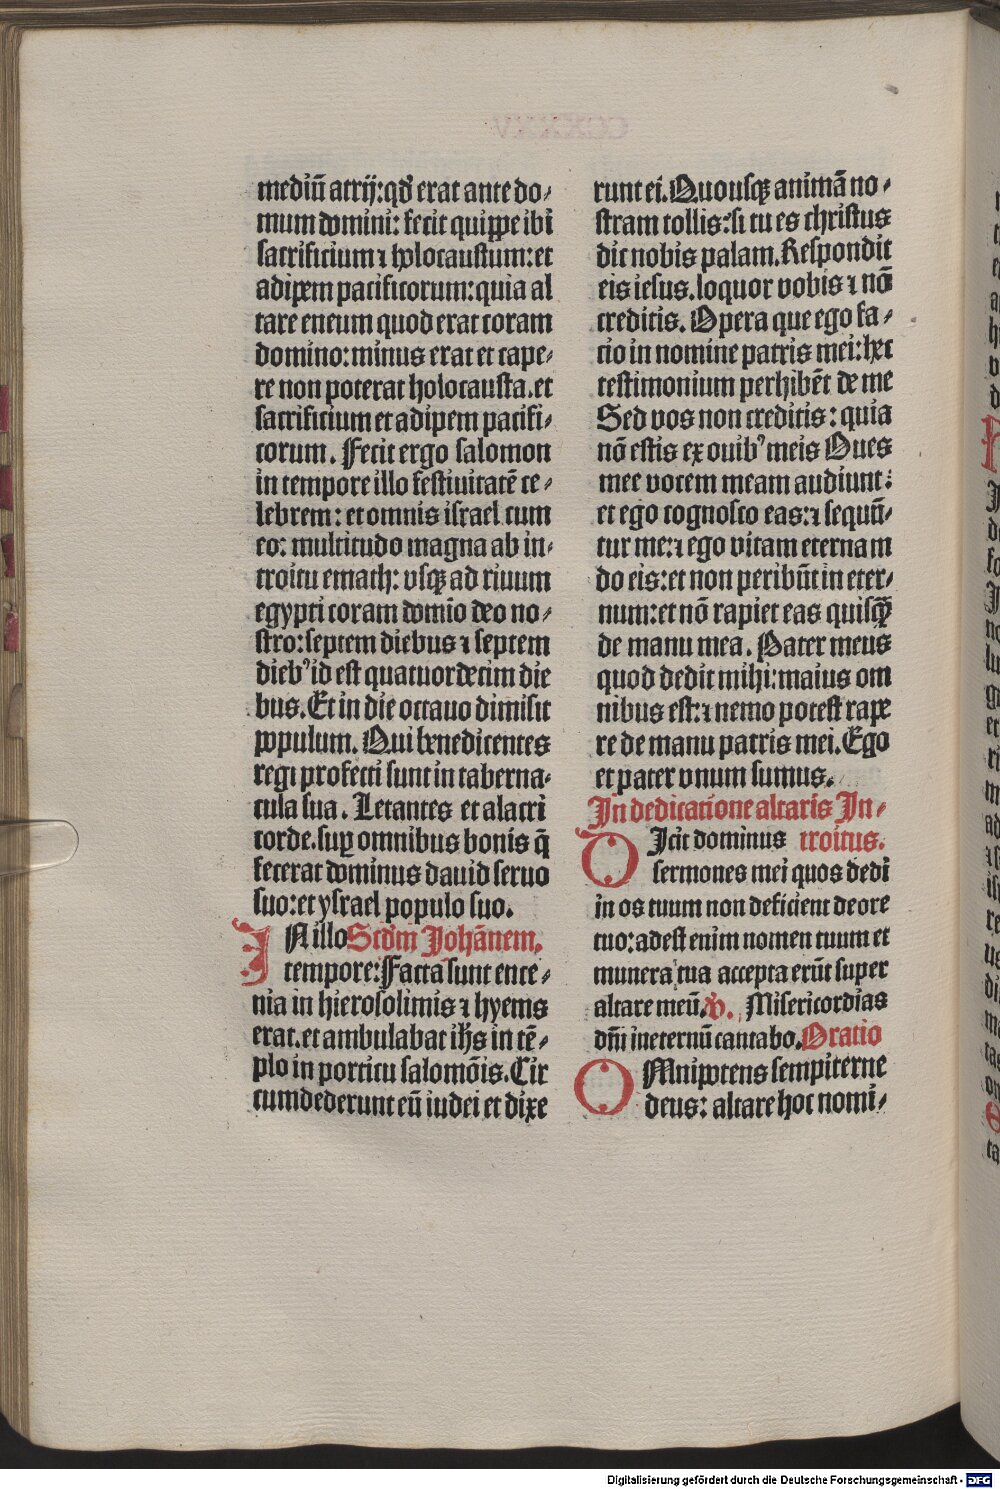 mediū atrij: qď erat ante do⸗
mum domini: fecit quippe ibi
sacrificium ⁊ holocaustum: et
adipem pacificorum: quia al
tare eneum quod erat coram
domino: minus erat et cape⸗
re non poterat holocausta. et
sacrificium et adipem pacifi⸗
corum. Fecit ergo salomon
in tempore illo festiuitatē ce⸗
lebrem: et omnis israel cum
eo: multitudo magna ab in⸗
troitu emath: vsqꝫ ad riuum
egypti coram domio deo no⸗
stro: septem diebus ⁊ septem
dieb⁹ id est quatuordecim die
bus. Et in die octauo dimisit
populum. Qui benedicentes
regi profecti sunt in taberna⸗
cula sua. Letantes et alacri
corde. suꝑ omnibus bonis q̄
fecerat dominus dauid seruo
suo: et ysrael populo suo.
IN illo Scďm Johānem.
tempore: Facta sunt ence⸗
nia in hierosolimis ⁊ hyems
erat. et ambulabat ihs̄ in tē⸗
plo in porticu salomōis. Cir
cumdederunt eū iudei et dixe
runt ei. Quousqꝫ animā no⸗
stram tollis: si tu es christus
dic nobis palam. Respondit
eis iesus. loquor vobis ⁊ nō
creditis. Opera que ego fa⸗
cio in nomine patris mei: hec
testimonium perhibēt de me
Sed vos non creditis: quia
nō estis ex ouib⁹ meis Oues
mee vocem meam audiunt:
et ego cognosco eas: ⁊ sequū⸗
tur me: ⁊ ego vitam eternam
do eis: et non peribūt in eter⸗
num: et nō rapiet eas quisqꝫ̄
de manu mea. Pater meus
quod dedit mihi: maius om
nibus est: ⁊ nemo potest rape
re de manu patris mei. Ego
et pater vnum sumus.
In dedicatione altaris In⸗
DIcit dominus troitus.
sermones mei quos dedi
in os tuum non deficient de ore
tuo: adest enim nomen tuum et
munera tua accepta erūt super
altare meū. v̄. Misericordias
dn̄i ineternū cantabo. Oratio
OMnipotens sempiterne
deus: altare hoc nomi⸗
Digitalisierung gefördert durch die Deutsche Forschungsgemeinschaft - DFG